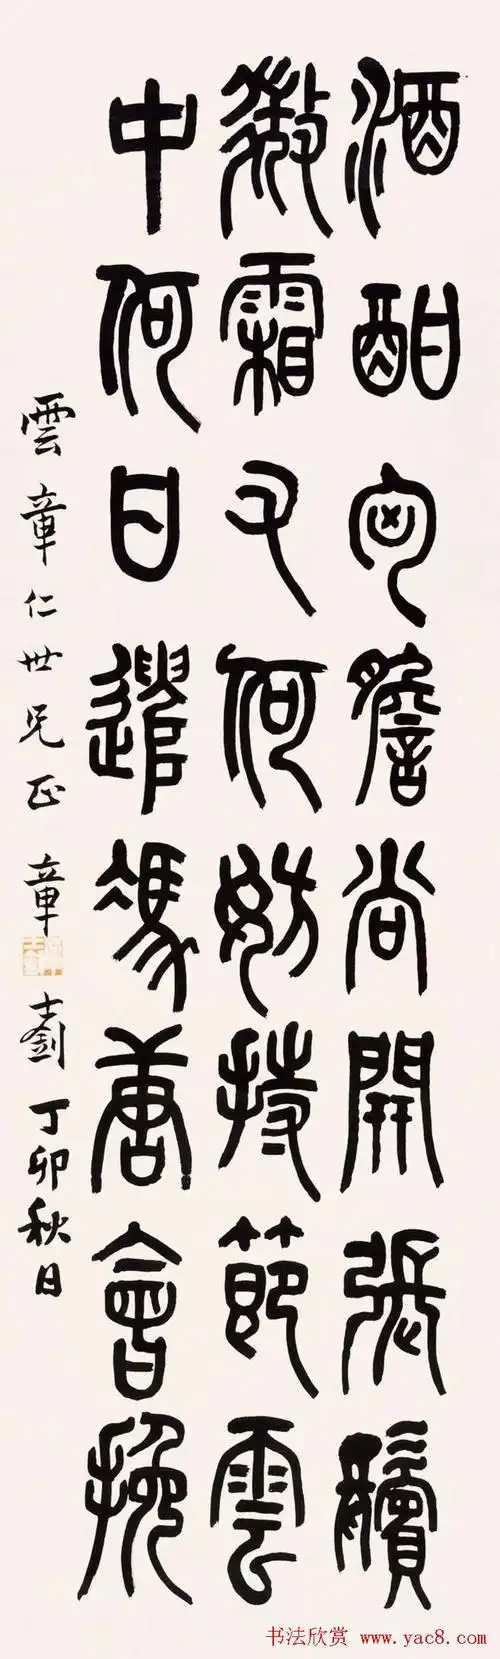 酒酣匈膽尚開張鬢
微霜又何妨持節雲
中何日遣馮唐會挽
雲章仁世兄正 章士釗 丁卯秋日
书法欣赏 www.yac8.com